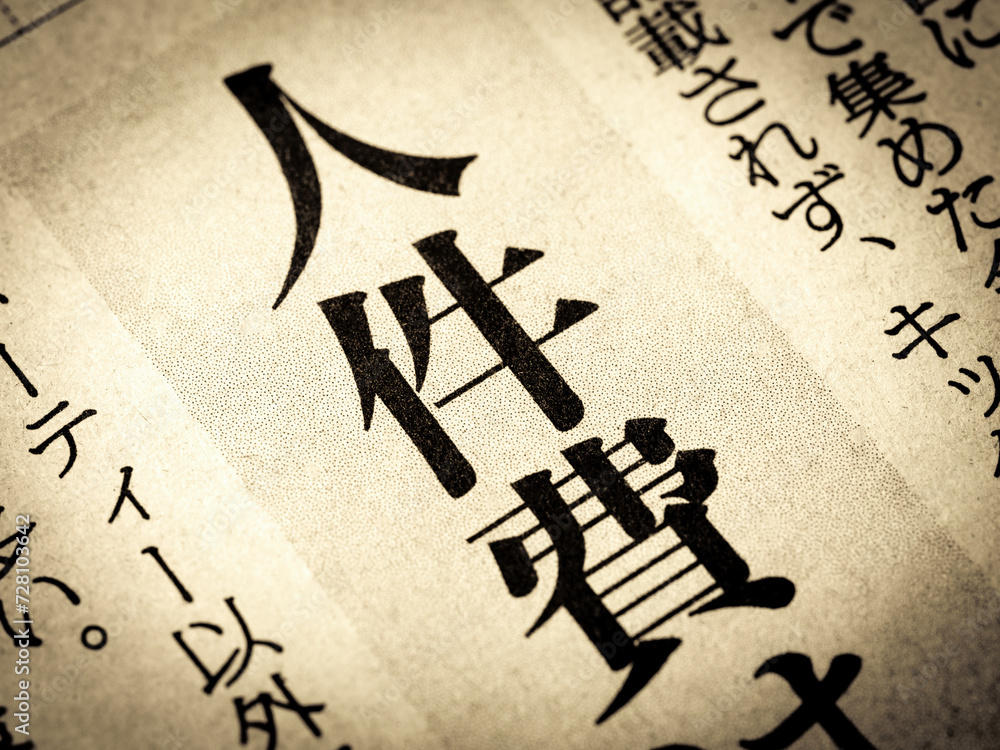 に
で集めた
キッ
載されず、
人件費
ティー以外
い。
Adobe Stock | #728103642